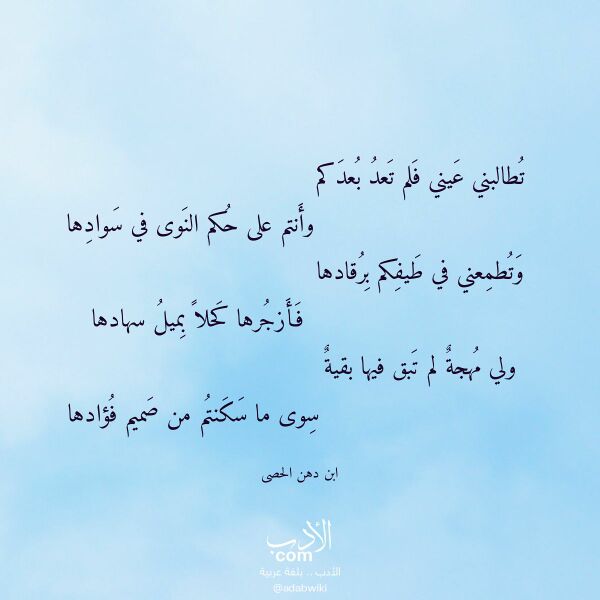 تُطالبني عَيني فَلم تَعدُ بُعدَكم
وأَنتم على حُكم النَوى في سَوادِها
وَتُطمِعني في طَيفِكم بِرُقادها
فَأَزجُرها كَحلاً بِميلُ سهادها
ولي مُهجةٌ لم تَبق فيها بقيةٌ
سِوى ما سَكَنتُم من صَميم فُؤادها
ابن دهن الحصى
الأدب
.com
الأدب .. بلغة عربية
@adabwiki